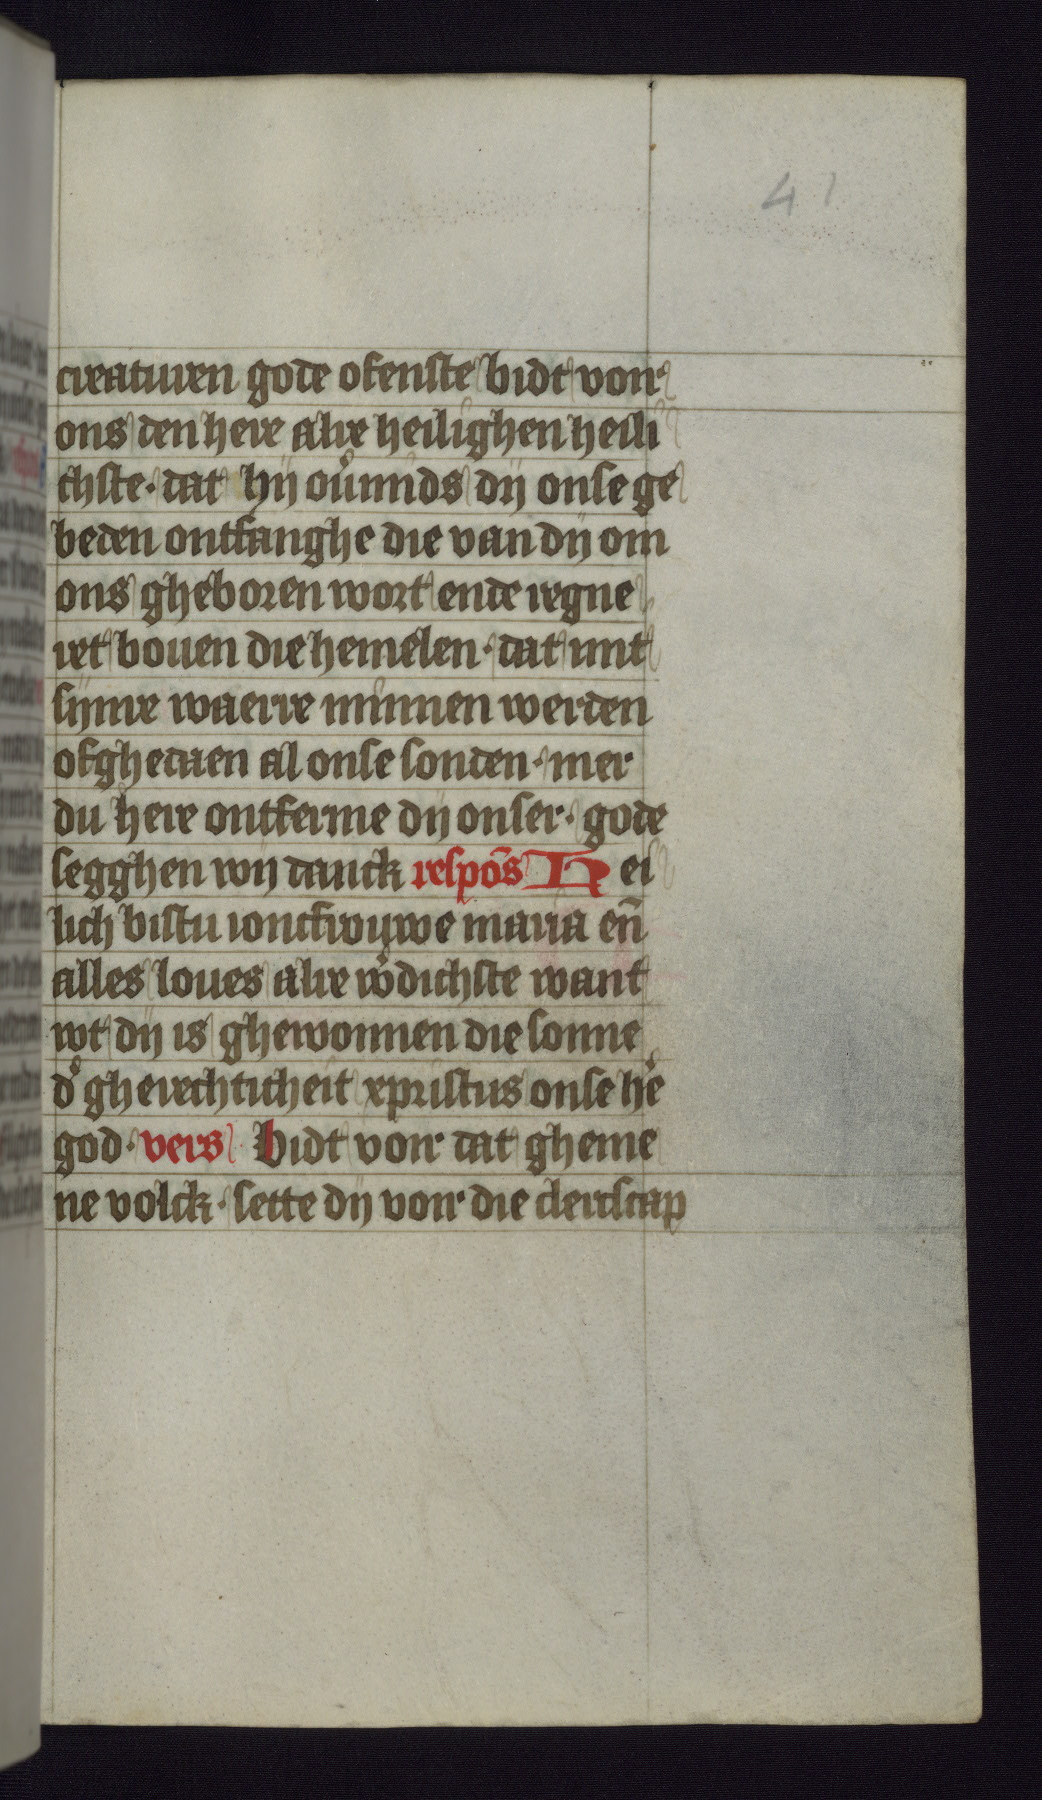 41
creaturen gode ofenste bidt voir
ons den here alre heilighen heili
chste · dat hij ou᷑mids dij onse ge
beden ontfanghe die van dij om
ons gheboren wort ende regne
ret bouen die hemelen · dat mit
sijnre waerre mi̅nnen werden
ofghedaen al onse sonden · mer
du here ontferme dij onser · gode
segghen wij danck respo̅s Hei
lich bistu ioncfrouwe maria en̅
alles loues alre w᷑dichste want
wt dij is ghewonnen die sonne
d᷑ gherechticheit xpristus onse he᷑
god · vers Bidt voir dat gheme
ne volck · sette dij voir die clercscap